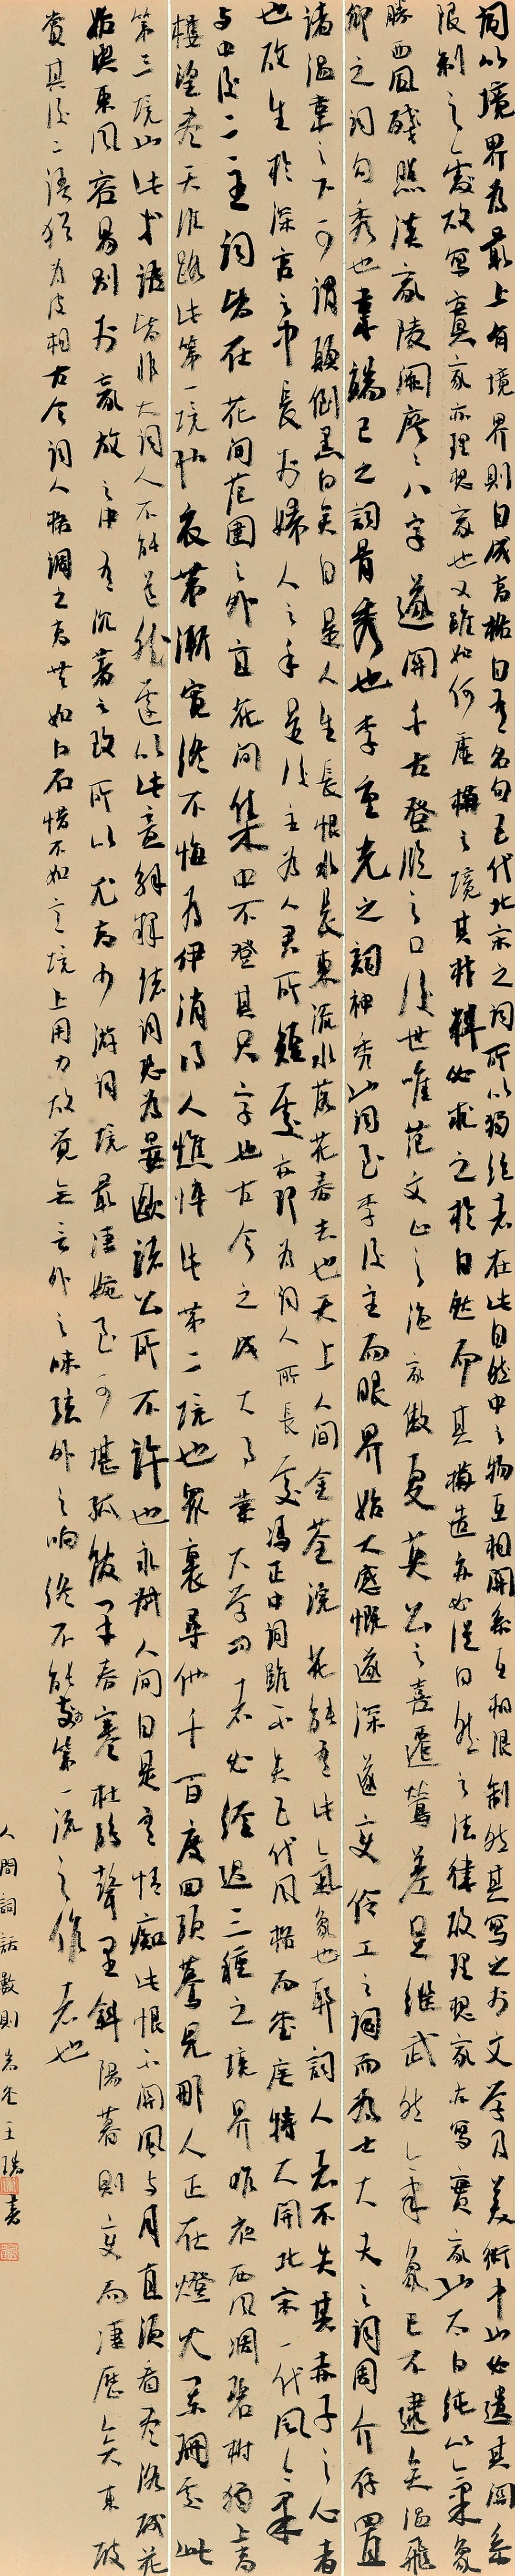 詞以境界為最上有境界則自成高格自有名句五代北宋之詞所以獨絕者在此自然中之物互相關系互相限制然其寫之於文學及美術中也必遺其關系
限制之處故寫實家亦理想家也又雖如何虛構之境其材料必求之於自然而其構造亦必從自然之法律故理想家亦寫實家也太白純以氣象
勝西風殘照漢家陵闕寥寥八字遂關千古登臨之口後世唯范文正之漁家傲夏英公之喜遷鶯差足繼武然氣象已不逮矣溫飛
卿之詞句秀也韋端己之詞骨秀也李重光之詞神秀也詞至李後主而眼界始大感慨遂深遂變伶工之詞而為士大夫之詞周介存置
諸溫韋之下可謂顛倒黑白矣自是人生長恨水長東流水落花春去也天上人間金荃浣花能有此氣象也耶詞人者不失其赤子之心者
也故生於深宮之中長於婦人之手是後主為人君所短處亦即為詞人所長處馮正中詞雖不失五代風格而堂廡特大開北宋一代風氣
與中後二主詞皆在花間范圍之外宜花間集中不登其只字也古今之成大事業大學問者必經過三種之境界昨夜西風凋碧樹獨上高
樓望盡天涯路此第一境也衣帶漸寬終不悔為伊消得人憔悴此第二境也眾裏尋他千百度回頭驀見那人正在燈火闌珊處此
第三境也此等語皆非大詞人不能道然遽以此意解釋諸詞恐為晏歐諸公所不許也永叔人間自是有情痴此恨不關風與月直須看盡洛城花
始與東風容易別於豪放之中有沉著之致所以尤高少游詞境最淒婉至可堪孤館閉春寒杜鵑聲里斜陽暮則變而淒厲矣東坡
賞其後二語猶為皮相古今詞人格調之高無如白石惜不如意境上用力故覺無言外之味弦外之响終不能於第一流之作者也
人間詞話數則 王